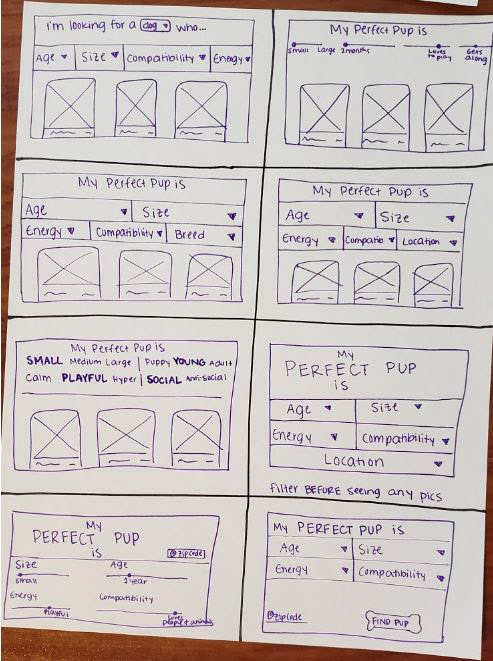 I'm looking for a dog who...
Age Size Compatibility Energy
My Perfect Pup is
Small Large 2months Loves to play Gets along
My Perfect Pup is
Age Size
Energy Compatibility Breed
My Perfect Pup is
Age Size
Energy Compatib Location
My Perfect Pup is
SMALL Medium Large | Puppy YOUNG Adult
Calm PLAYFUL Hyper | SOCIAL Anti-social
My
PERFECT PUP
is
Age Size
Energy Compatibility
Location
Filter BEFORE seeing any pics
My
PERFECT PUP
is
zipcode
Size Age
small 1 year
Energy Compatibility
Playful people + animals
My PERFECT PUP is
Age Size
Energy Compatibility
zipcode
FIND PUP